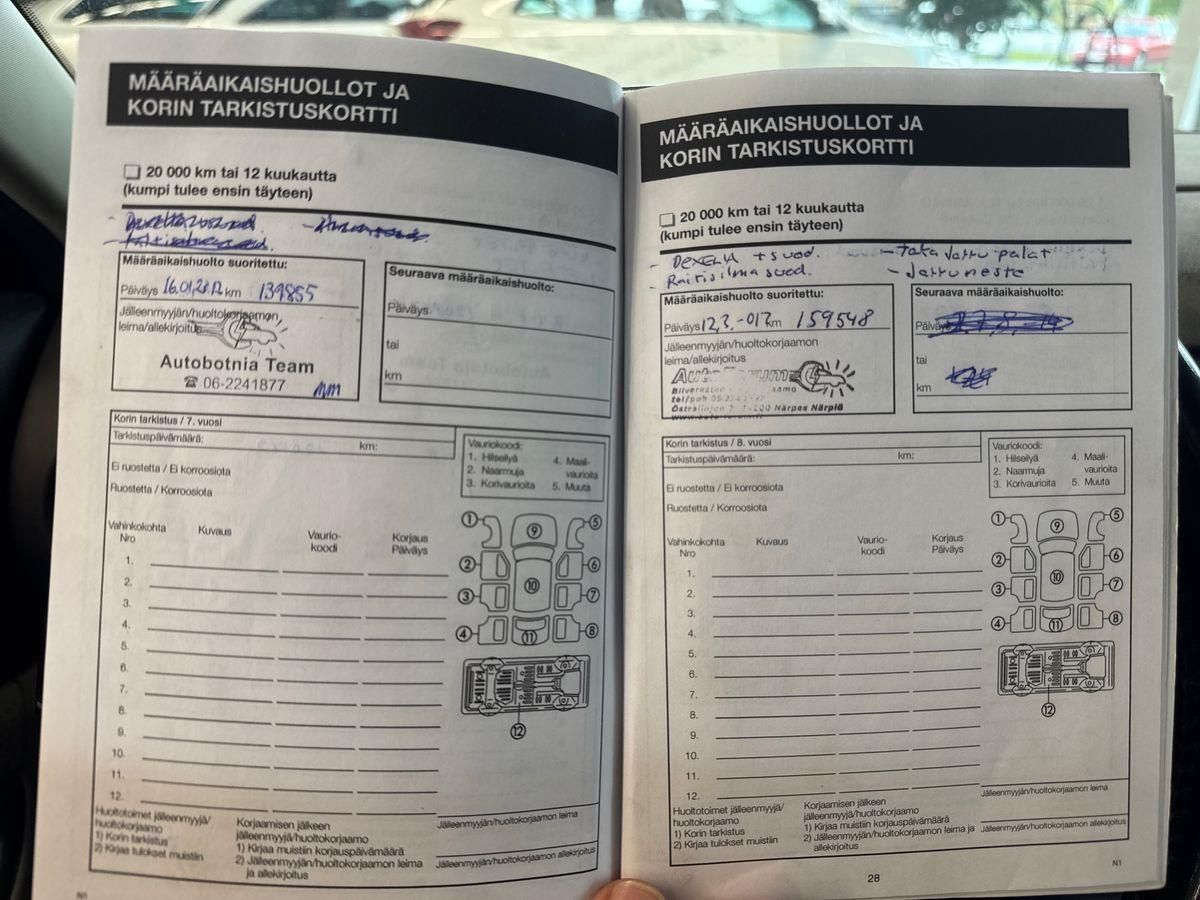 MÄÄRÄAIKAISHUOLLOT JA
KORIN TARKISTUSKORTTI
20 000 km tai 12 kuukautta
(kumpi tulee ensin täyteen)
Määräaikaishuolto suoritettu:
Päiväys 16.01.2012 km 139855
Jälleenmyyjän/huoltokorjaamon
leima/allekirjoitus
Autobotnia Team
☎ 06-2241877
Seuraava määräaikaishuolto:
Päiväys
tai
km
Korin tarkistus / 7. vuosi
Tarkistuspäivämäärä: km:
Ei ruostetta / Ei korroosiota
Ruostetta / Korroosiota
Vauriokoodi:
1. Hilseilyä 4. Maali-
2. Naarmuja vaurioita
3. Korivaurioita 5. Muuta
Vahinkokohta Kuvaus Vaurio- Korjaus
Nro koodi Päiväys
1.
2.
3.
4.
5.
6.
7.
8.
9.
10.
11.
12.
1 9 5
2 6
10
3 7
4 11 8
12
Huoltotoimet jälleenmyyjä/
huoltokorjaamo
1) Korin tarkistus
2) Kirjaa tulokset muistiin
Korjaamisen jälkeen
jälleenmyyjä/huoltokorjaamo
1) Kirjaa muistiin korjauspäivämäärä
2) Jälleenmyyjän/huoltokorjaamon leima
ja allekirjoitus
Jälleenmyyjän/huoltokorjaamon leima
Jälleenmyyjän/huoltokorjaamon allekirjoitus
N1
MÄÄRÄAIKAISHUOLLOT JA
KORIN TARKISTUSKORTTI
20 000 km tai 12 kuukautta
(kumpi tulee ensin täyteen)
- + suod. - taka jarru palat
- Raitisilma suod. - Jarruneste
Määräaikaishuolto suoritettu:
Päiväys 12,3,-017 km 159548
Jälleenmyyjän/huoltokorjaamon
leima/allekirjoitus
Närpes Närpiö
Seuraava määräaikaishuolto:
Päiväys
tai
km
Korin tarkistus / 8. vuosi
Tarkistuspäivämäärä: km:
Ei ruostetta / Ei korroosiota
Ruostetta / Korroosiota
Vauriokoodi:
1. Hilseilyä 4. Maali-
2. Naarmuja vaurioita
3. Korivaurioita 5. Muuta
Vahinkokohta Kuvaus Vaurio- Korjaus
Nro koodi Päiväys
1.
2.
3.
4.
5.
6.
7.
8.
9.
10.
11.
12.
1 9 5
2 6
10
3 7
4 11 8
12
Huoltotoimet jälleenmyyjä/
huoltokorjaamo
1) Korin tarkistus
2) Kirjaa tulokset muistiin
Korjaamisen jälkeen
jälleenmyyjä/huoltokorjaamo
1) Kirjaa muistiin korjauspäivämäärä
2) Jälleenmyyjän/huoltokorjaamon leima ja
allekirjoitus
Jälleenmyyjän/huoltokorjaamon leima
Jälleenmyyjän/huoltokorjaamon allekirjoitus
28
N1